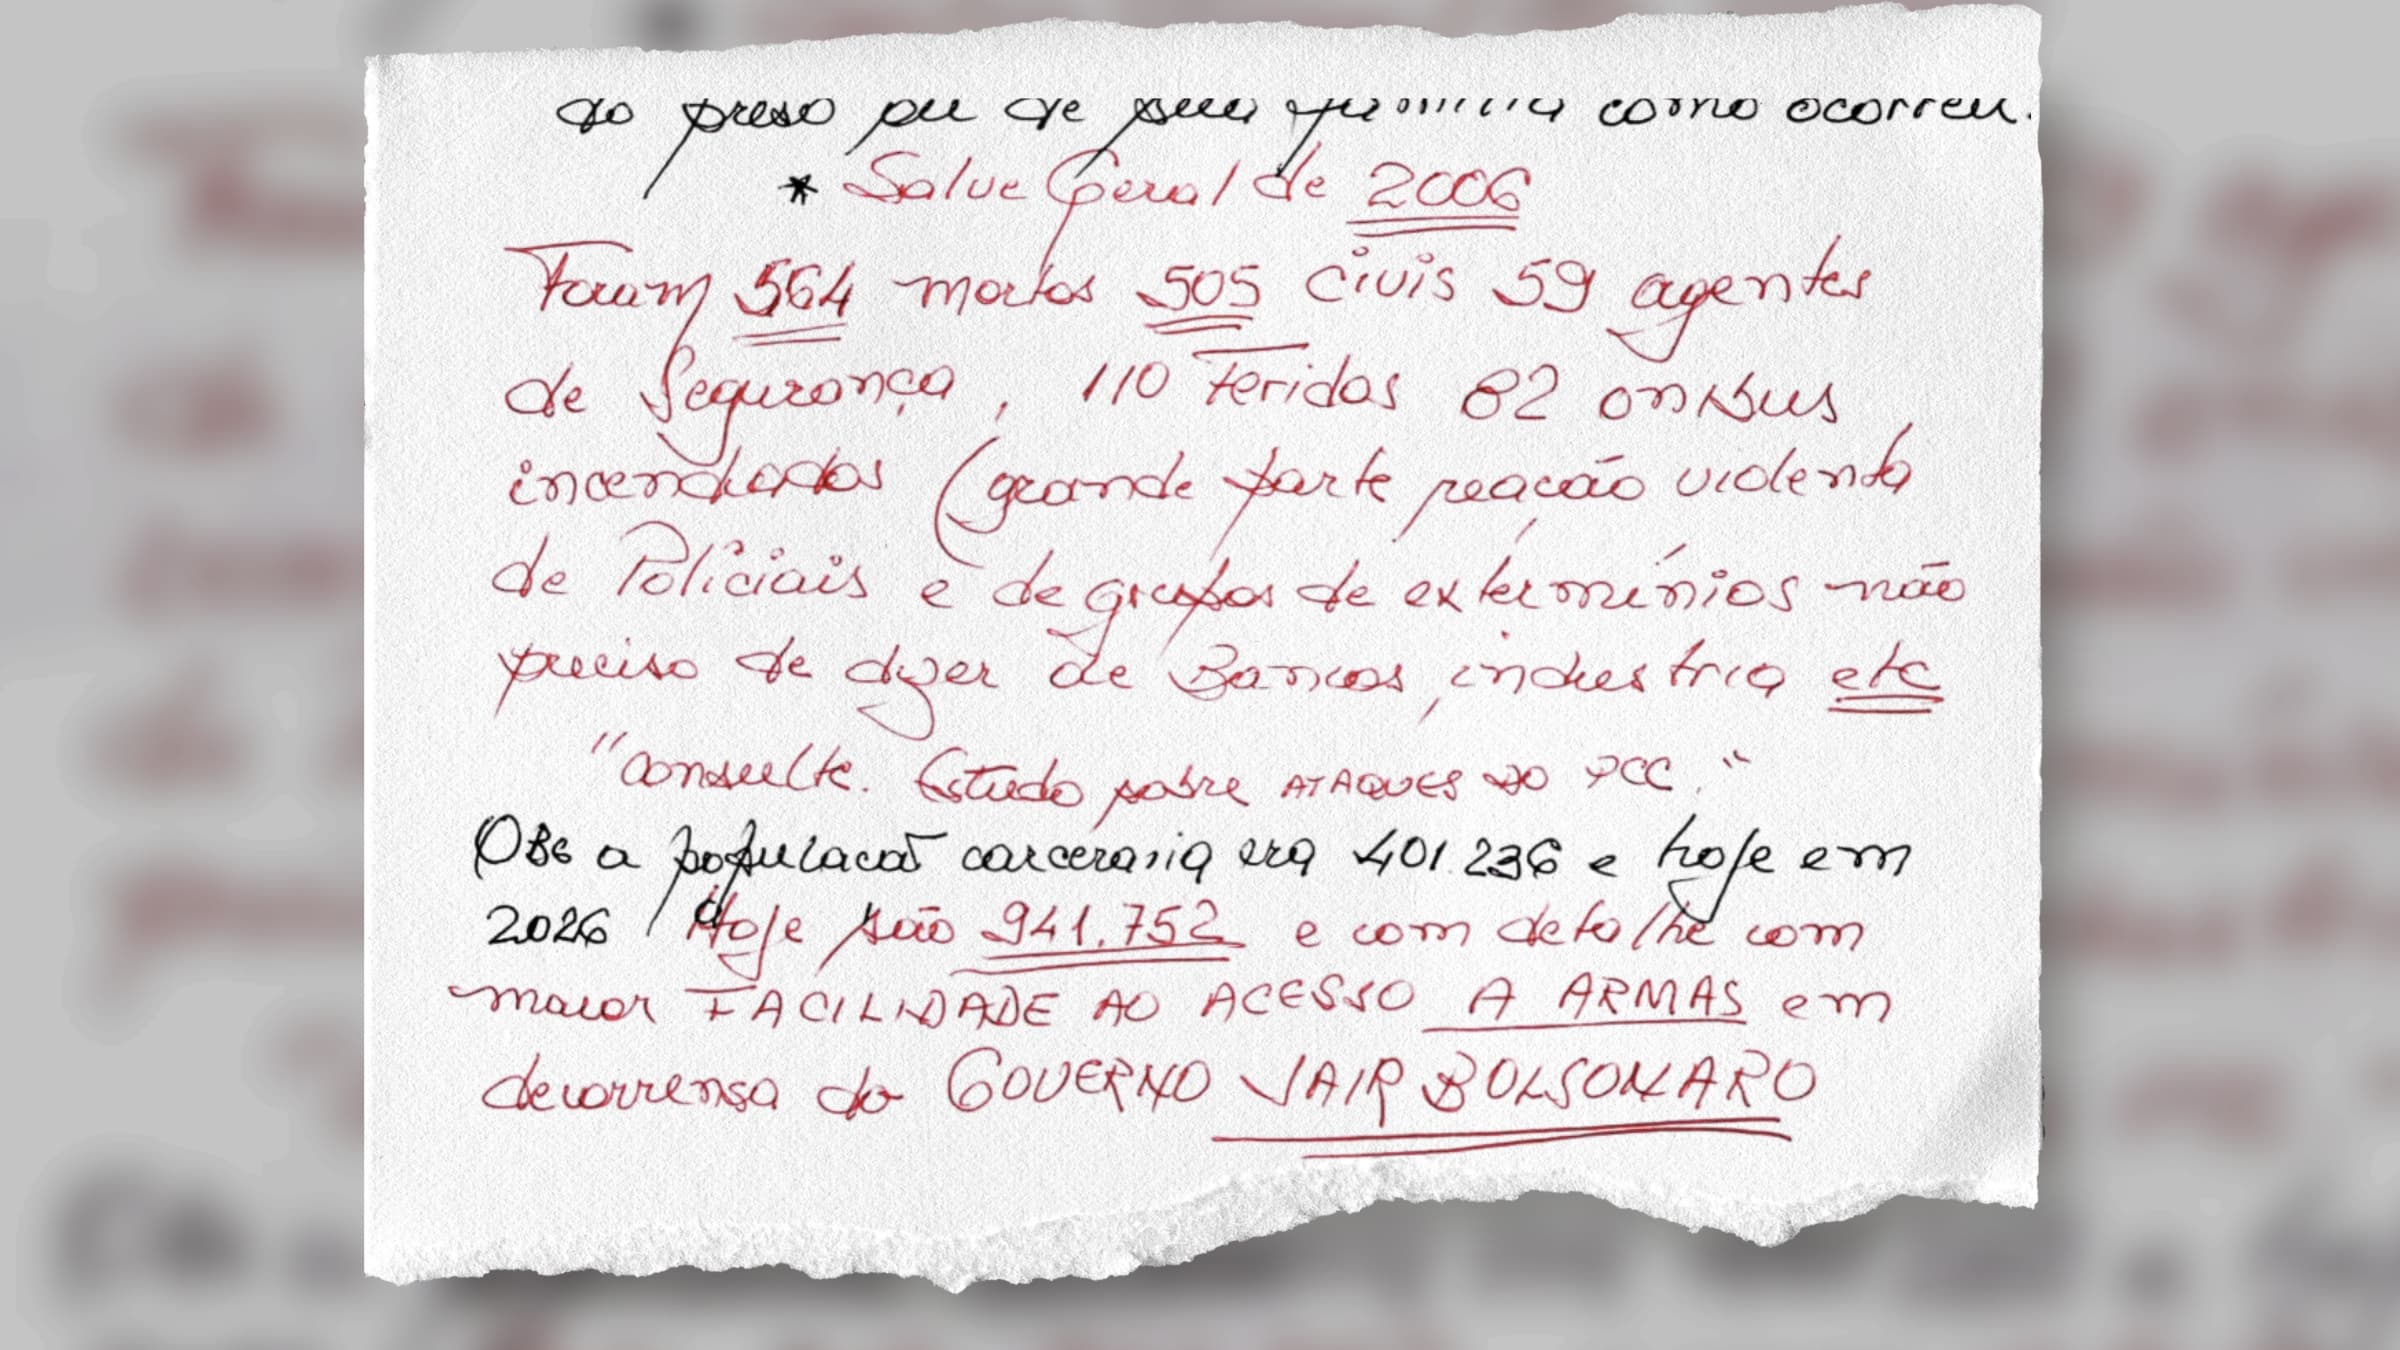 do preso ou de sua familia como ocorreu.
* Salve Geral de 2006
Foram 564 mortos 505 civis 59 agentes
de Segurança, 110 Feridos 82 onibus
incendiados (grande parte reação violenta
de Policiais e de grupos de extermínios não
preciso de dizer de Bancos, industria etc
"Consulte. Estudo sobre ATAQUES DO PCC."
OBS a população carceraria era 401.236 e hoje em
2026 Hoje são 941.752 e com detalhe com
maior FACILIDADE AO ACESSO A ARMAS em
decorrensa do GOVERNO JAIR BOLSONARO